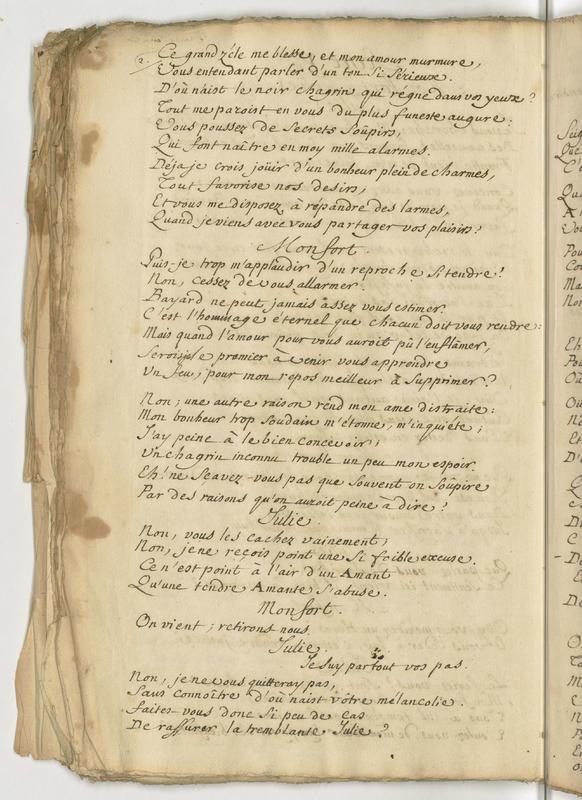 2. Ce grand zéle me blesse, et mon amour murmure,
Vous entendant parler d'un ton si sérieux.
D'où naist le noir chagrin qui régne dans vos yeux ?
Tout me paroist en vous du plus funeste augure :
Vous poussez de secrets soûpirs,
Qui font naître en moy mille alarmes.
Déja je crois joüir d'un bonheur plein de charmes,
Tout favorise nos desirs,
Et vous me disposez à répandre des larmes,
Quand je viens avec vous partager vos plaisirs ?
Monfort.
Puis-je trop m'applaudir d'un reproche si tendre !
Non, cessez de vous allarmer.
Bayard ne peut jamais assez vous estimer.
C'est l'hommage éternel que chacun doit vous rendre :
Mais quand l'amour pour vous auroit pû l'enflâmer,
Serois-je le premier à venir vous apprendre
Un feu, pour mon repos meilleur à supprimer ?
Non ; une autre raison rend mon ame distraite :
Mon bonheur trop soudain m'étonne, m'inquiéte ;
J'ay peine à le bien concevoir ;
Un chagrin inconnu trouble un peu mon espoir.
Eh ! ne sçavez-vous pas que souvent on soûpire
Par des raisons qu'on auroit peine à dire ?
Julie.
Non, vous les cachez vainement,
Non, je ne reçois point une si foible excuse.
Ce n'est point à l'air d'un Amant
Qu'une tendre Amante s'abuse.
Monfort.
On vient ; retirons nous.
Julie.
Je suy partout vos pas.
Non, je ne vous quitteray pas,
Sans connoître d'où naist vôtre mélancolie.
Faites-vous donc si peu de cas
De rassurer la tremblante Julie ?